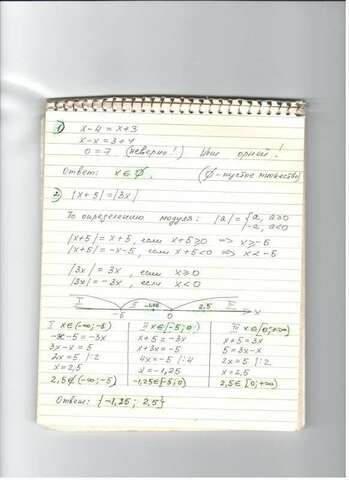 1) x-4 = x+3
x-x = 3+4
0 = 7 (неверно!) Или орной!
Ответ: x∈∅. (∅-пустое множество)
2) |x+5| = |3x|
По определению модуля: |a| = {a, a≥0
-a, a<0
|x+5| = x+5, если x+5≥0 => x≥-5
|x+5| = -x-5, если x+5<0 => x<-5
|3x| = 3x, если x≥0
|3x| = -3x, если x<0
I II III
-1,25 2,5
-5 0 x
I x∈(-∞;-5) II x∈[-5;0) III x∈[0;+∞)
-x-5 = -3x x+5 = -3x x+5 = 3x
3x-x = 5 x+3x = -5 5 = 3x-x
2x = 5 |:2 4x = -5 |:4 2x = 5 |:2
x = 2,5 x = -1,25 x = 2,5
2,5∉(-∞;-5) -1,25∈[-5;0) 2,5∈[0;+∞)
Ответ: {-1,25; 2,5}